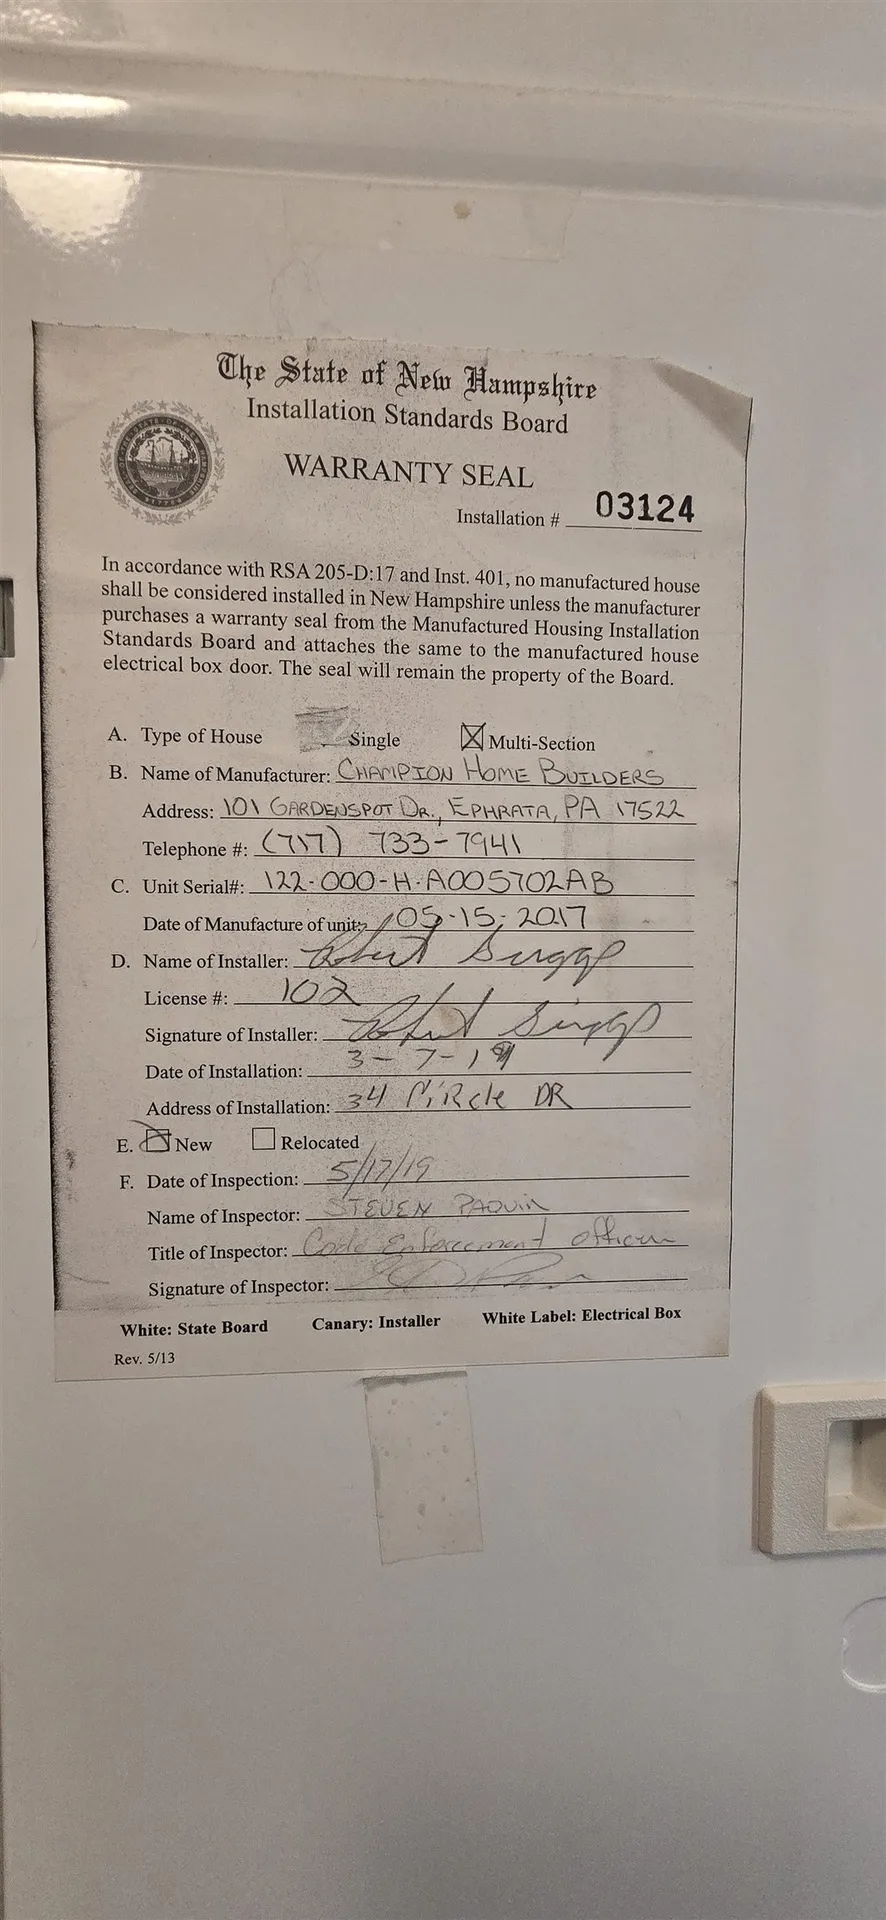 The State of New Hampshire
Installation Standards Board
WARRANTY SEAL
Installation # 03124
In accordance with RSA 205-D:17 and Inst. 401, no manufactured house
shall be considered installed in New Hampshire unless the manufacturer
purchases a warranty seal from the Manufactured Housing Installation
Standards Board and attaches the same to the manufactured house
electrical box door. The seal will remain the property of the Board.
A. Type of House Single Multi-Section
B. Name of Manufacturer: CHAMPION HOME BUILDERS
Address: 101 GARDENSPOT DR., EPHRATA, PA 17522
Telephone #: (717) 733-7941
C. Unit Serial#: 122-000-H-A005702AB
Date of Manufacture of unit: 05-15-2017
D. Name of Installer: Robert
License #: 102
Signature of Installer: Robert
Date of Installation: 3-7-19
Address of Installation: 34 CiRcle DR
E. New Relocated
F. Date of Inspection: 5/17/19
Name of Inspector: STEVEN PAQUIN
Title of Inspector: Code Enforcement officer
Signature of Inspector:
White: State Board Canary: Installer White Label: Electrical Box
Rev. 5/13